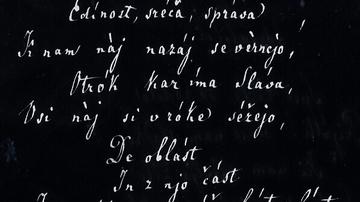 Edinost, sréča, správa,
K nam nàj nazáj se vèrnejo,
Otrók kar íma Sláva,
Vsi nàj si v róke séžejo,
De oblást
In z njo část,